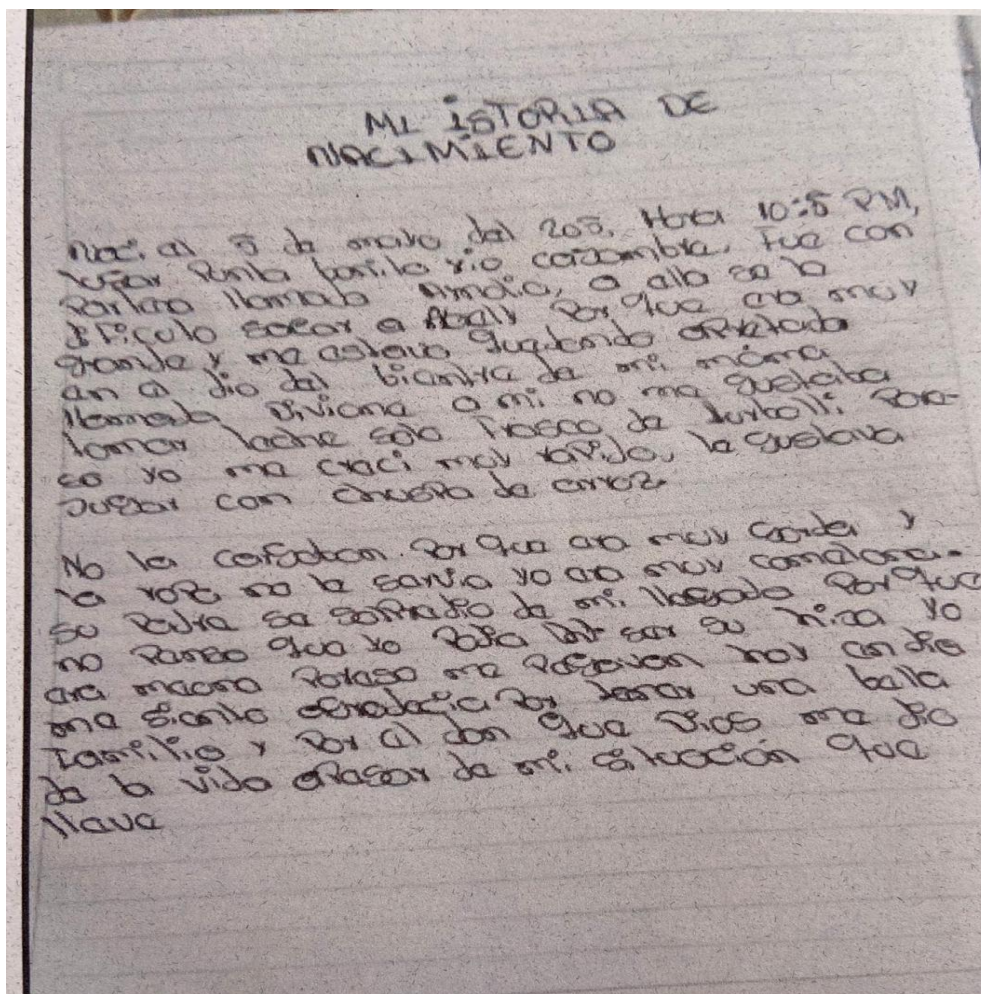 MI ISTORIA DE
NACIMIENTO
naci el 5 de mayo del 205, Hora 10:5 PM,
lugar Punta bonita rio caizambra. Fue con
Partera llamada Amalia, a ella se la
dificulo sacar a Abaly Por que era muy
grande y me estava jugdendo apretada
en el dio del bientre de mi máma
llamada Viviana a mi no me gustaba
tomar leche solo Fresco de Por e-
so yo me creci muy rapido, le gustava
jugar con de arroz.
No la cargaban Por que era muy gorda y
la ropa no le servia yo era muy comelona.
su Padre se sorpredio de mi llegada Porque
no Penso que yo Podia ser su hiza yo
era macona Poreso me Pegavan hoy en dia
me siento agradecia Por tener una bella
Familia y Por el don que Dios me dio
de la vida apesar de mi situación que
lleve